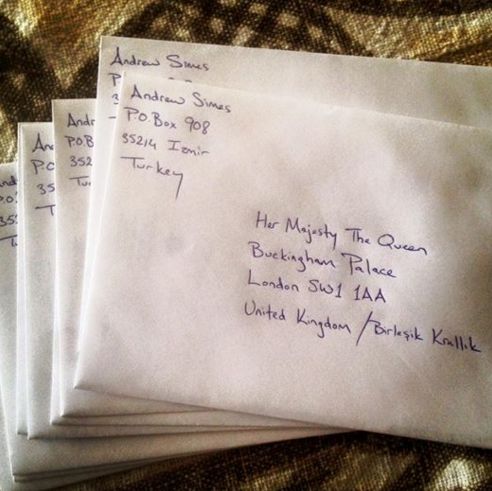 Andrew Simes
P
3
Andrew Simes
P.O. Box 908
35214 Izmir
Turkey
Her Majesty The Queen
Buckingham Palace
London SW1 1AA
United Kingdom / Birleşik Krallık
Andr
P.O.B
352
Tur
An
P.O.
35
T
And
P.O
35
Tu